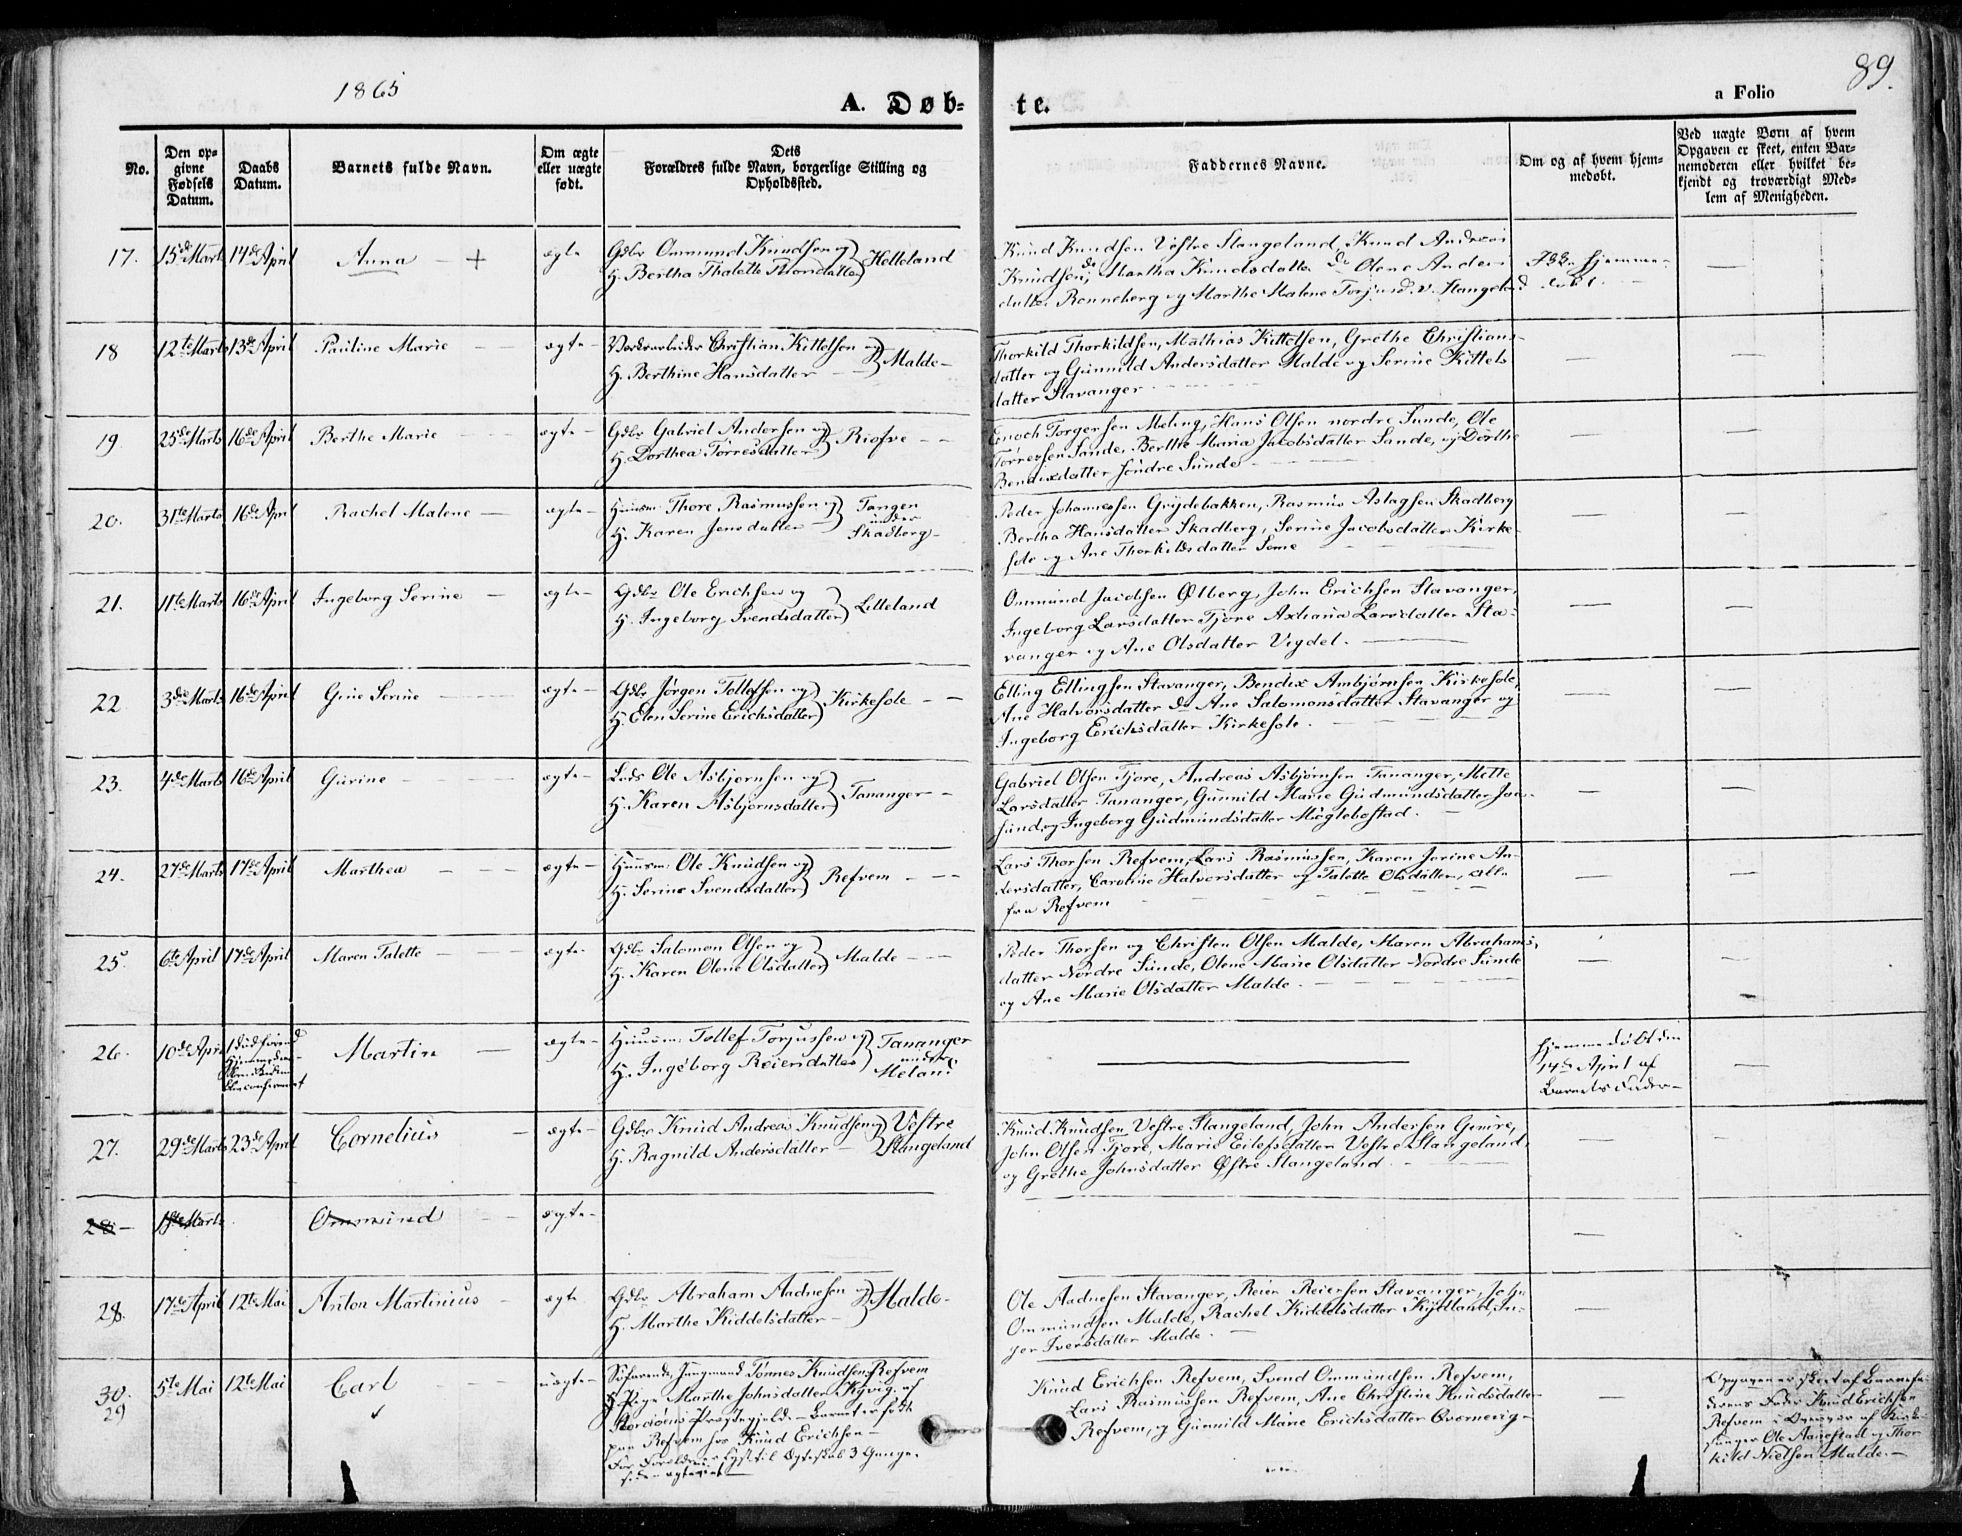 1865
A. Døb-
te.
a Folio
89.
No.
Den op-
givne
Fødsels
Datum.
Daabs
Datum.
Barnets fulde Navn.
Om ægte
eller uægte
født.
Dets
Forældres fulde Navn, borgerlige Stilling og
Opholdssted.
Faddernes Navne.
Om og af hvem hjem-
medøbt.
Ved uægte Børn af hvem
Opgaven er skeet, enten Bar-
nemoderen eller hvilket be-
kjendt og troværdigt Med-
lem af Menigheden.
17. 15de Marts 14de April Anna — + ægte
Gdbr Ommund Knudsen og
H. Bertha Thalette Thorsdatter Helleland
Knud Knudsen Vestre Stangeland, Knud Andreas
Knudsen do, Martha Knudsdatter do Olene Anders
datter Renneberg og Marthe Malene Torjusd. v. Stangeland
Ikke hjemme-
døbt. —
18 12te Marts 13de April Pauline Marie — ægte —
Christian Kittelsen og
H. Berthine Hansdatter — Malde —
Thorkild Thorkildsen, Mathias Kittelsen, Grethe Christians-
datter og Gunnild Andersdatter Malde og Serine Kittels
datter Stavanger
19. 25de Marts 16de April Berthe Marie — ægte —
Gdbr Gabriel Andersen og
H. Dorthea Torresdatter Riofve —
Enoch Torgersen Meling, Hans Olsen nordre Sunde, Ole
Torressen Sande, Berthe Maria Jacobsdatter Sande, og Dorthe
Bendixdatter søndre Sunde —
20. 31te Marts 16de April Rachel Malene — ægte —
Huusm. Thore Rasmussen og
H. Karen Jensdatter — Tangen
under
Skadberg —
Peder Johannessen Grydebakken, Rasmus Aslagsen Skadberg
Bertha Hansdatter Skadberg, Serine Jacobsdatter Kirke-
sole og Ane Thorkildsdatter Somme —
21. 11te Marts 16de April Ingeborg Serine — ægte —
Gdbr Ole Erichsen og
H. Ingeborg Svendsdatter Lilleland
Ommund Jacobsen Ølberg, John Erichsen Stavanger,
Ingeborg Larsdatter Tjore Axliana Larsdatter Sta-
vanger og Ane Olsdatter Vigdel. —
22. 3de Marts 16de April Gine Serine — ægte —
Gdbr Jørgen Tollefsen og
H. Elen Serine Erichsdatter Kirkesole —
Elling Ellingsen Stavanger, Bendix Ambjørnsen Kirkesole,
Ane Halvorsdatter do Ane Salomonsdatter Stavanger og
Ingeborg Erichsdatter Kirkesole. —
23. 4de Marts 16de April Gurine — ægte —
Lods Ole Asbjørnsen og
H. Karen Asbjørnsdatter Tananger —
Gabriel Olsen Tjore, Andreas Asbjørnsen Tananger, Mette
Larsdatter Tananger, Gunnild Marie Gudmundsdatter Jaa-
sund, og Ingeborg Gudmundsdatter Meglebostad.
24. 27de Marts 17de April Marthea — ægte —
Huusm. Ole Knudsen og
H. Serine Svendsdatter Refvem —
Lars Thorsen Refvem, Lars Rasmussen, Karen Jorine An-
dersdatter, Caroline Halvorsdatter og Talette Olsdatter, alle
fra Refvem
25 6te April 17de April Maren Talette — ægte —
Gdbr Salomon Olsen og
H. Karen Olene Olsdatter Malde —
Peder Thorsen og Christen Olsen Malde, Maren Abrahams-
datter Nordre Sunde, Olene Marie Olsdatter Nordre Sunde
og Ane Marie Olsdatter Malde. —
26. 10de April Martin — ægte —
Huusm. Tollef Torjussen og
H. Ingeborg Reiersdatter Tananger
under
Meland
hjemmedøbt den
14de April af
Barnets Fader —
27. 29de Marts 23de April Cornelius — ægte —
Gdbr Knud Andreas Knudsen og
H. Ragnild Andersdatter — Vestre
Stangeland
Knud Knudsen Vestre Stangeland, John Andersen Gimre,
John Olsen Tjore, Marie Eilefsdatter Vestre Stangeland,
og Grethe Johnsdatter Østre Stangeland. —
28 — Marts Ommund — ægte —
28. 17de April 12te Mai Anton Martinius — ægte
Gdbr Abraham Aadnesen og
H. Marthe Kiddelsdatter — Malde —
Ole Aadnesen Stavanger, Reier Reiersen Stavanger, John
Ommundsen Malde, Rachel Kiddelsdatter Kjelland, In-
ger Iversdatter Malde. —
30.
29 5te Mai 12te Mai Carl — uægte —
Søfarende Jungmand Tønnes Knudsen Refvem
& Pige Marthe Johnsdatter Kyvig af
Præstegjeld. — Barnet er født
paa Refvem hos Knud Erichsen —
For Forældrene lyst til Ægteskab 3 Gange.
Knud Erichsen Refvem, Svend Ommundsen Refvem,
Lars Rasmussen Refvem, Ane Christine Knudsdatter
Refvem, og Gunnild Marie Erichsdatter Qvernevig —
Opgaven er skeet af Barnefa-
derens Fader Knud Erichsen
Refvem i Overvær af Kirke-
sanger Ole Aanestad og Thor
kild Nielsen Malde. —